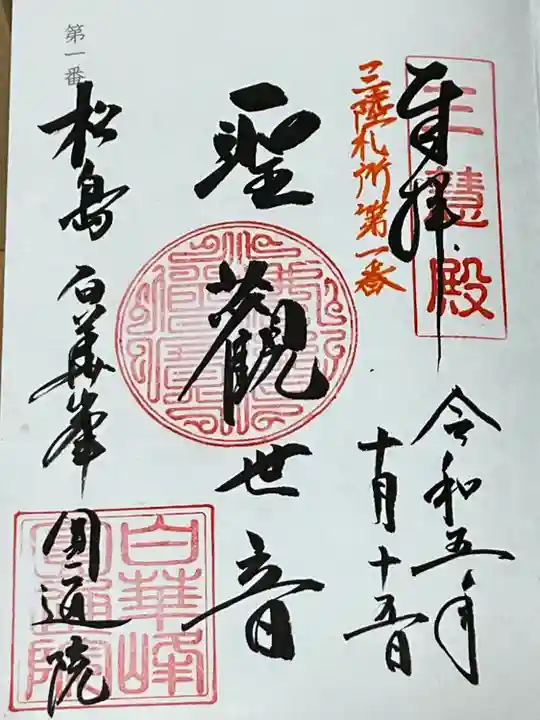 奉拝
三慧殿
令和五年
十月十五日
三陸札所第一番
聖観世音
第一番
松島 白華峯
圓通院
白華峰
圓通院